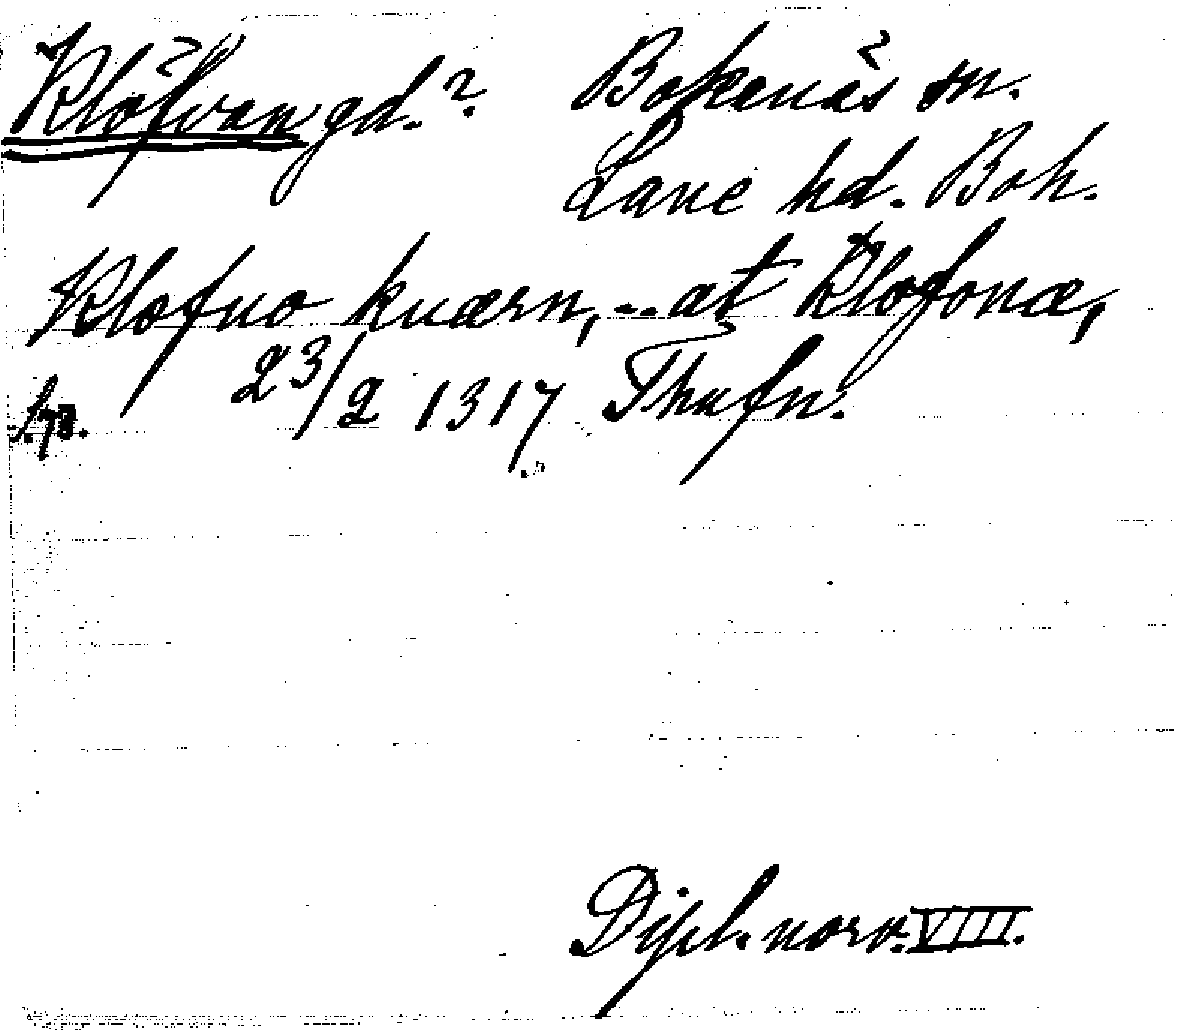 Klöfvan gd.? Bokenäs sn.
Lane hd. Boh.
Klofuo kuærn, -- at Klofonæ,
23/2 1317 Thufn.
Dipl. norv. VIII.